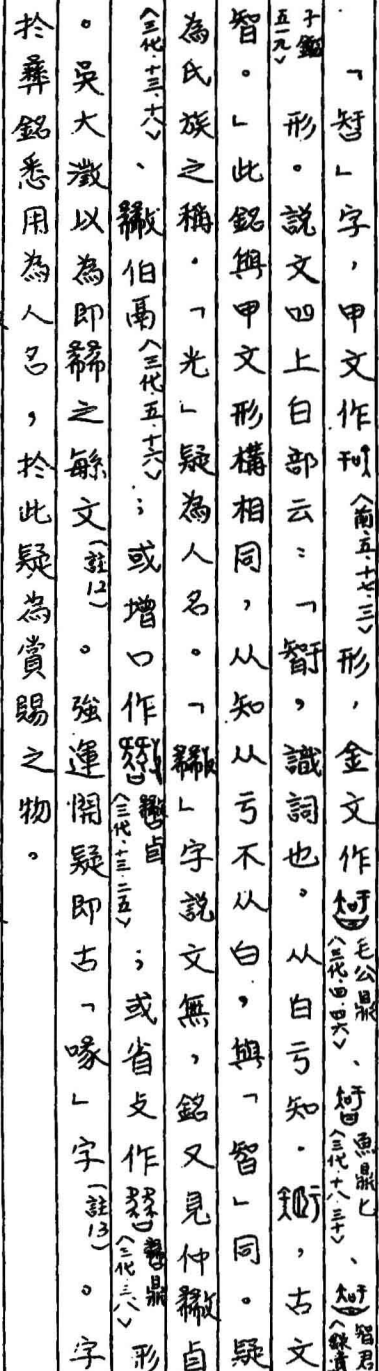 「智」字，甲文作〈前·五·十七·三〉形，金文作毛公鼎〈三代·四·四六〉、魚鼎匕〈三代·十八·三十〉、智君
子鑑五一九〉形。說文四上白部云：「𥏼，識詞也。从白亏知。，古文
智。」此銘與甲文形構相同，从知从亏不从白，與「智」同。疑
為氏族之稱。「光」疑為人名。「」字說文無，銘又見仲卣
〈三代·十三·十六〉、伯鬲〈三代·五·十六〉；或增口作卣〈三代·十三·二五〉；或省攴作鼎〈三代·三·八〉形
。吳大澂以為即之緐文（註12）。強運開疑即古「喙」字（註13）。字
於彝銘悉用為人名，於此疑為賞賜之物。